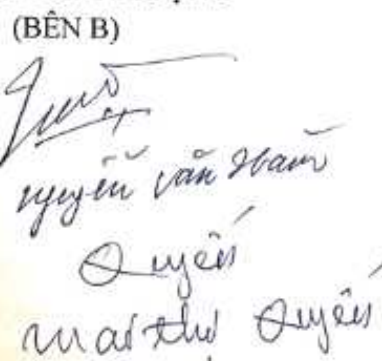 (BÊN B)
nguyễn văn Nam
Quyến
mai thị Quyến